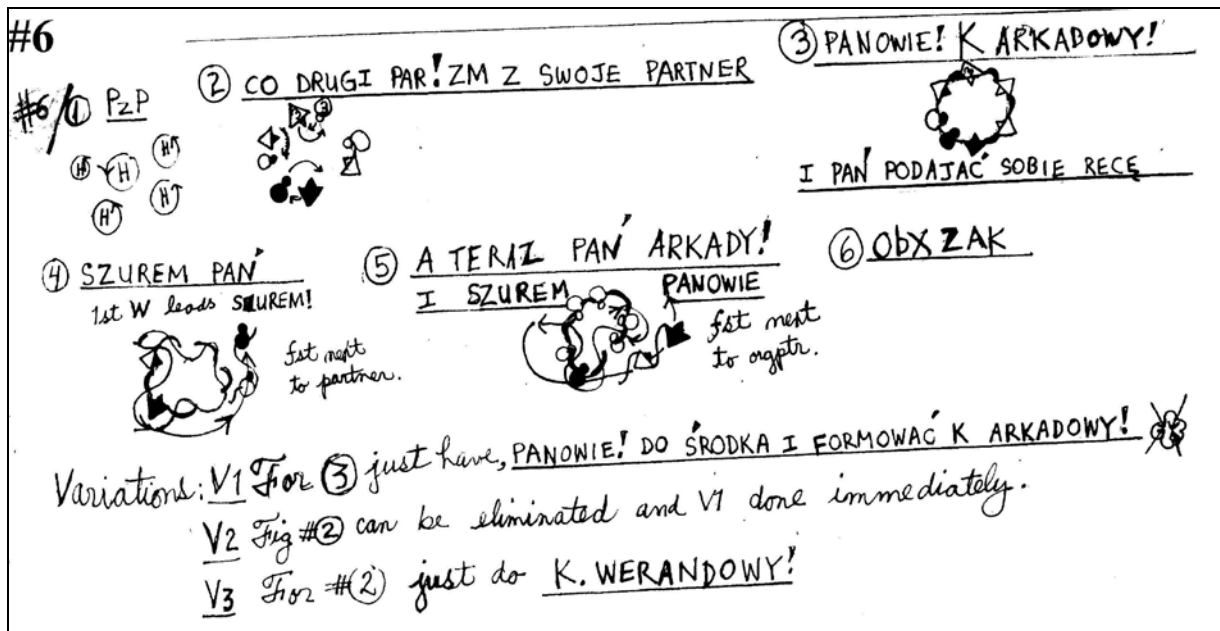 #6
#6/① PzP
② CO DRUGI PAR! ZM Z SWOJE PARTNER
③ PANOWIE! K ARKADOWY!
I PAŃ PODAJAĆ SOBIE RECĘ
H H H
H H
④ SZUREM PAŃ
1st W leads SZUREM!
fst next
to partner.
⑤ A TERAZ PAŃ ARKADY!
I SZUREM PANOWIE
fst next
to orgptr.
⑥ ObX ZAK
Variations: V1 For ③ just have, PANOWIE! DO ŚRODKA I FORMOWAĆ K ARKADOWY!
V2 Fig #② can be eliminated and V1 done immediately.
V3 For #② just do K. WERANDOWY!